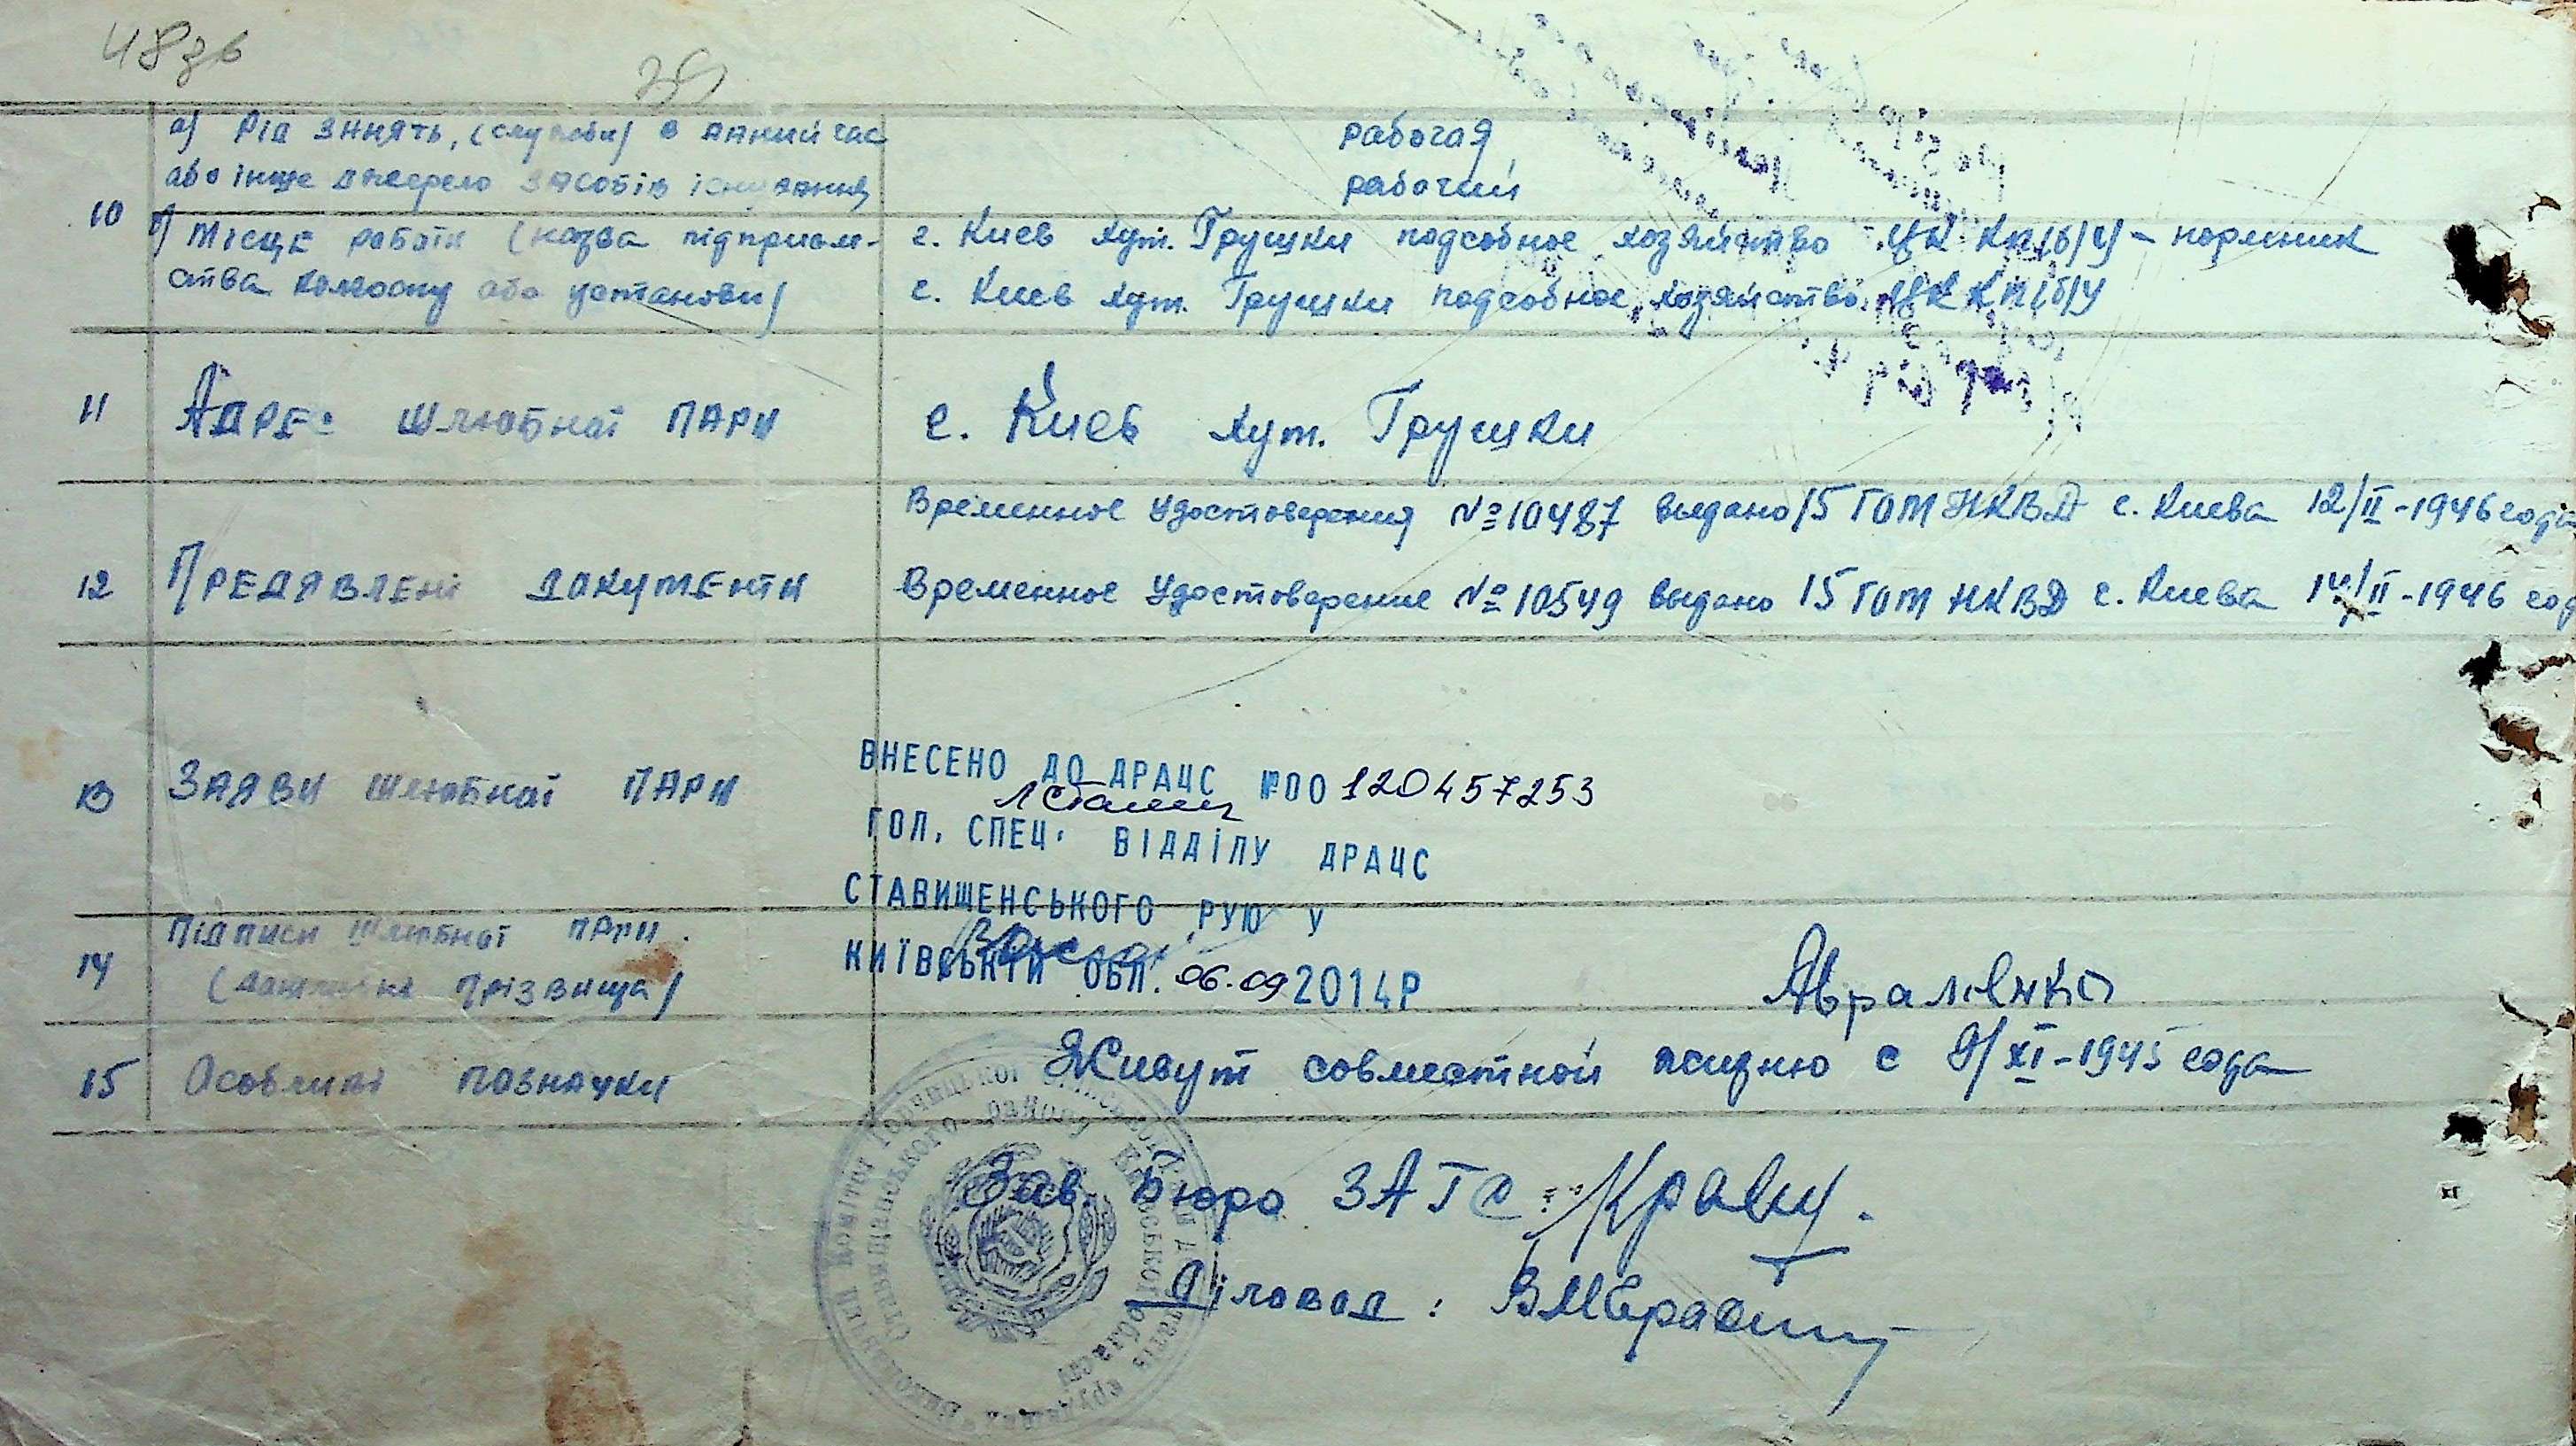 48зв
а) Рід занять, (служби) в даний час
або інше джерело засобів існування
рабочая
рабочий
10
б) місце роботи (назва підприєм-
ства колгоспу або установи)
г. Киев хут. Грушки подсобное хозяйство ЦК КП(б)У -
г. Киев хут. Грушки подсобное хозяйство ЦК КП(б)У
11
Адрес шлюбної пари
г. Киев хут. Грушки
12
Предявлені документи
Временное удостоверения №10487 выдано 15 ГОМ НКВД г. Киева 12/II-1946 года
Временное удостоверение №10549 выдано 15 ГОМ НКВД г. Киева 14/II-1946 год
13
Заяви шлюбної пари
ВНЕСЕНО ДО ДРАЦС №00120457253
ГОЛ. СПЕЦ. ВІДДІЛУ ДРАЦС
СТАВИЩЕНСЬКОГО РУЮ У
КИЇВСЬКІЙ ОБЛ. 06.09 2014Р
14
Підписи шлюбної пари
(дошлюбні прізвища)
Авраменко
15
Особливі позначки
Живут совместной жизню с 9/XI-1945 года
Зав. Бюро ЗАГС:
Діловод: